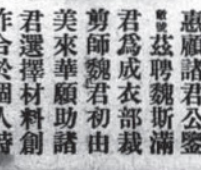 惠顧諸君公鑒
敝號茲聘魏斯滿
君爲成衣部裁
剪師魏君初由
美來華願助諸
君選擇材料創
作合於個人時